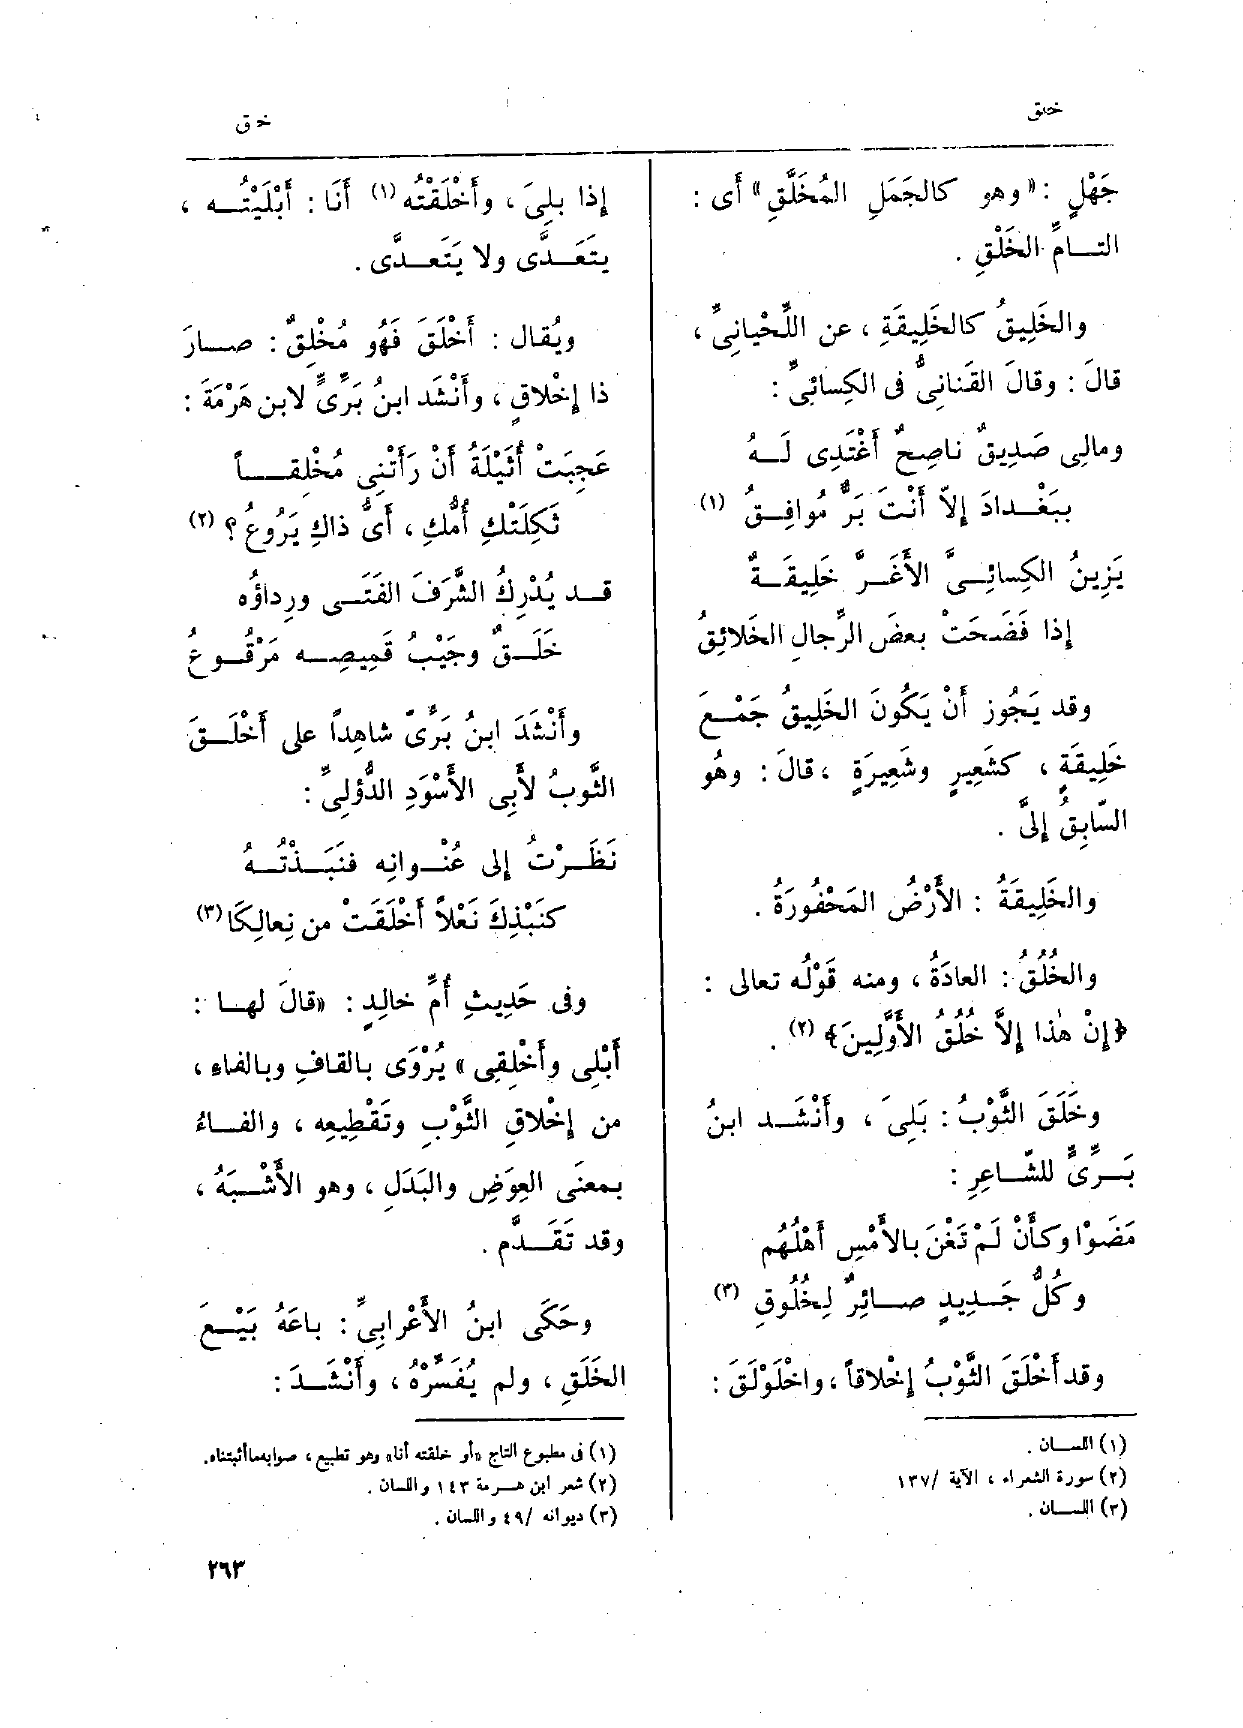 خلق
خ ق
جَهْلٍ : « وهو كالجَمَلِ المُخَلَّقِ » أَى :
التــامِّ الخَلْقِ .
والخَلِيقُ كالخَلِيقَةِ ، عن اللِّحْيانِىِّ ،
قالَ : وقالَ القَنانِىُّ فى الكِسائِىِّ :
ومالِى صَدِيقٌ ناصِحٌ أَغْتَدِى لَــهُ
بِبَغْــدادَ إِلاّ أَنْتَ بَرٌّ مُوافِــقُ (١)
يَزِينُ الكِسائِــىَّ الأَغَــرَّ خَلِيقَــةٌ
إِذا فَضَحَتْ بعضَ الرِّجالِ الخَلائِقُ
وقد يَجُوز أَنْ يَكُونَ الخَلِيقُ جَمْـعَ
خَلِيقَةٍ ، كشَعِيرٍ وشَعِيرَةٍ ، قالَ : وهُو
السّابِقُ إِلىَّ .
والخَلِيقَةُ : الأَرْضُ المَحْفُورَةُ .
والخُلُقُ : العادَةُ ، ومنه قَوْلُه تعالى :
﴿إِنْ هٰذا إِلاَّ خُلُقُ الأَوَّلِينَ﴾ (٢) .
وخَلَقَ الثَّوْبُ : بَلِىَ ، وأَنْشَــد ابنُ
بَــرِّىٍّ للشّــاعِرِ :
مَضَوْا وكأَنْ لَمْ تَغْنَ بالأَمْسِ أَهْلُهُم
وكُلُّ جَــدِيدٍ صــائِرٌ لِخُلُوقِ (٣)
وقد أَخْلَقَ الثَّوْبُ إِخْلاقاً ، واخْلَوْلَقَ :
(١) اللســان .
(٢) سورة الشعراء ، الآية /١٣٧
(٣) اللســان .
إِذا بلِىَ ، وأَخْلَقْتُه (١) أَنَا : أَبْلَيْتُــه ،
يتَعَــدَّى ولا يَتَعــدَّى .
ويُقال : أَخْلَقَ فَهُو مُخْلِقٌ : صــارَ
ذا إِخْلاقٍ ، وأَنْشَد ابنُ بَرِّىٍّ لابن هَرْمَةَ :
عَجِبَتْ أُثَيْلَةُ أَنْ رَأَتْنِى مُخْلِقــاً
ثَكِلَتْكِ أُمُّكِ ، أَىُّ ذاكِ يَرُوعُ ؟ (٢)
قــد يُدْرِكُ الشَّرَفَ الفَتَــى ورِداؤُه
خَلَــقٌ وجَيْبُ قَمِيصِــه مَرْقُــوعُ
وأَنْشَدَ ابنُ بَرِّىّ شاهِداً على أَخْلَــقَ
الثَّوبُ لأَبِى الأَسْوَدِ الدُّؤَلِىِّ :
نَظَــرْتُ إِلى عُنْــوانِه فنَبَــذْتُــهُ
كنَبْذِكَ نَعْلاً أَخْلَقَتْ من نِعالِكَا (٣)
وفى حَدِيثِ أُمِّ خالِدٍ : «قالَ لهــا :
أَبْلِى وأَخْلِقِى » يُرْوَى بالقافِ وبالفاءِ ،
من إِخْلاقِ الثَّوْبِ وتَقْطِيعِه ، والفــاءُ
بمعنَى العِوَضِ والبَدَلِ ، وهو الأَشْــبَهُ ،
وقد تَقَــدَّم .
وحَكَى ابنُ الأَعْرابِىِّ : باعَهُ بَيْــعَ
الخَلَقِ ، ولم يُفَسِّرْهُ ، وأَنْشَــدَ :
(١) فى مطبوع التاج «أو خلقته أنا» وهو تطبيع ، صوابه ما أثبتناه.
(٢) شعر ابن هــرمة ١٤٣ واللسان .
(٣) ديوانه /٤٩ واللسان .
٢٦٣